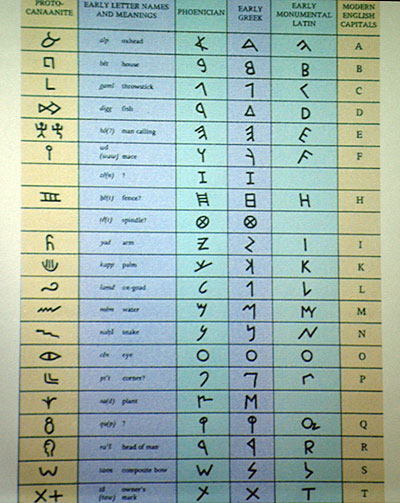 PROTO-CANAANITE EARLY LETTER NAMES AND MEANINGS PHOENICIAN EARLY GREEK EARLY MONUMENTAL LATIN MODERN ENGLISH CAPITALS
alp oxhead A
bêt house B
gaml throwstick C
digg fish D
hô(?) man calling E
wô (waw) mace F
zê(n) ? I I
ḥê(t) fence? H H
ṭê(t) spindle?
yad arm I I
kapp palm K K
lamd ox-goad L L
mêm water M
naḥš snake N
cên eye O O O O
pi't corner? P
ṣa(d) plant M
qu(p) ? Q
ra'š head of man R R
śann composite bow W S S
tô (taw) owner's mark X T T